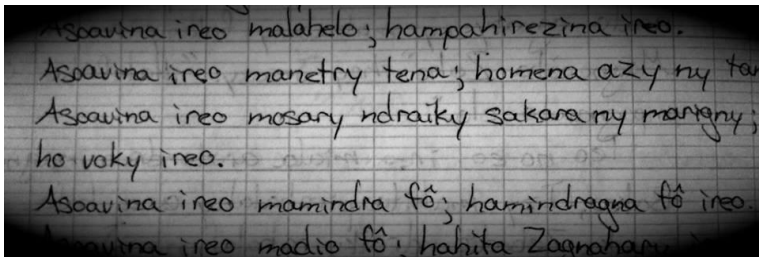 Asoavina ireo malahelo; hampahirezina ireo.
Asoavina ireo manetry tena; homena azy ny tan
Asoavina ireo mosary ndraiky sakara ny marigny;
ho voky ireo.
Asoavina ireo mamindra fô; hamindragna fô ireo.
Asoavina ireo madio fô; hahita Zagnahary